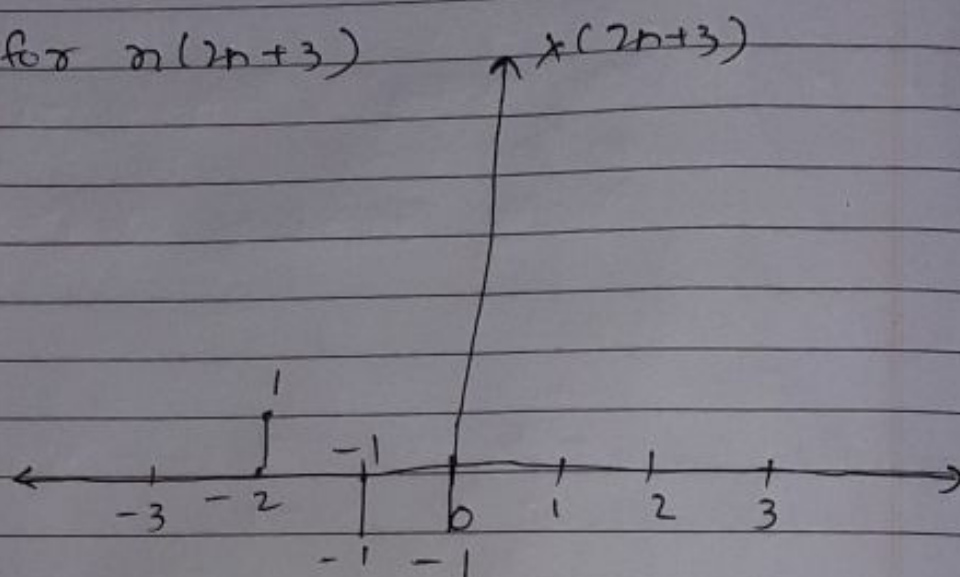 for x(2n+3)
x(2n+3)
1
-1
-3 -2 0 1 2 3
-1 -1